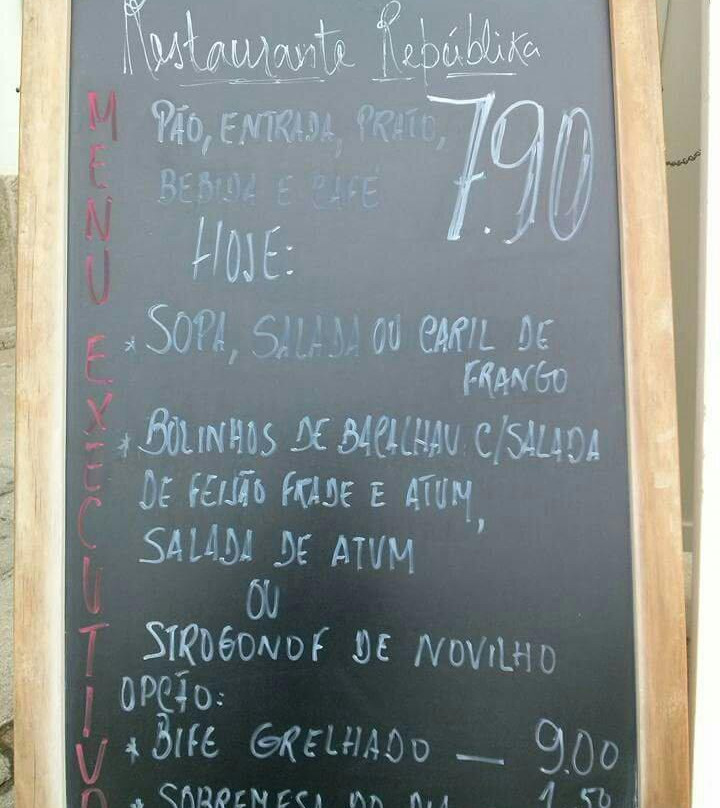 Restaurante Repúblika
MENU EXECUTIVO
PÃO, ENTRADA, PRATO,
BEBIDA E CAFÉ
7.90
HOJE:
* SOPA, SALADA OU CARIL DE
FRANGO
* BOLINHOS DE BACALHAU C/SALADA
DE FEIJÃO FRADE E ATUM,
SALADA DE ATUM
OU
STROGONOF DE NOVILHO
OPÇÃO:
* BIFE GRELHADO — 9.00
* SOBREMESA DO DIA 1.50